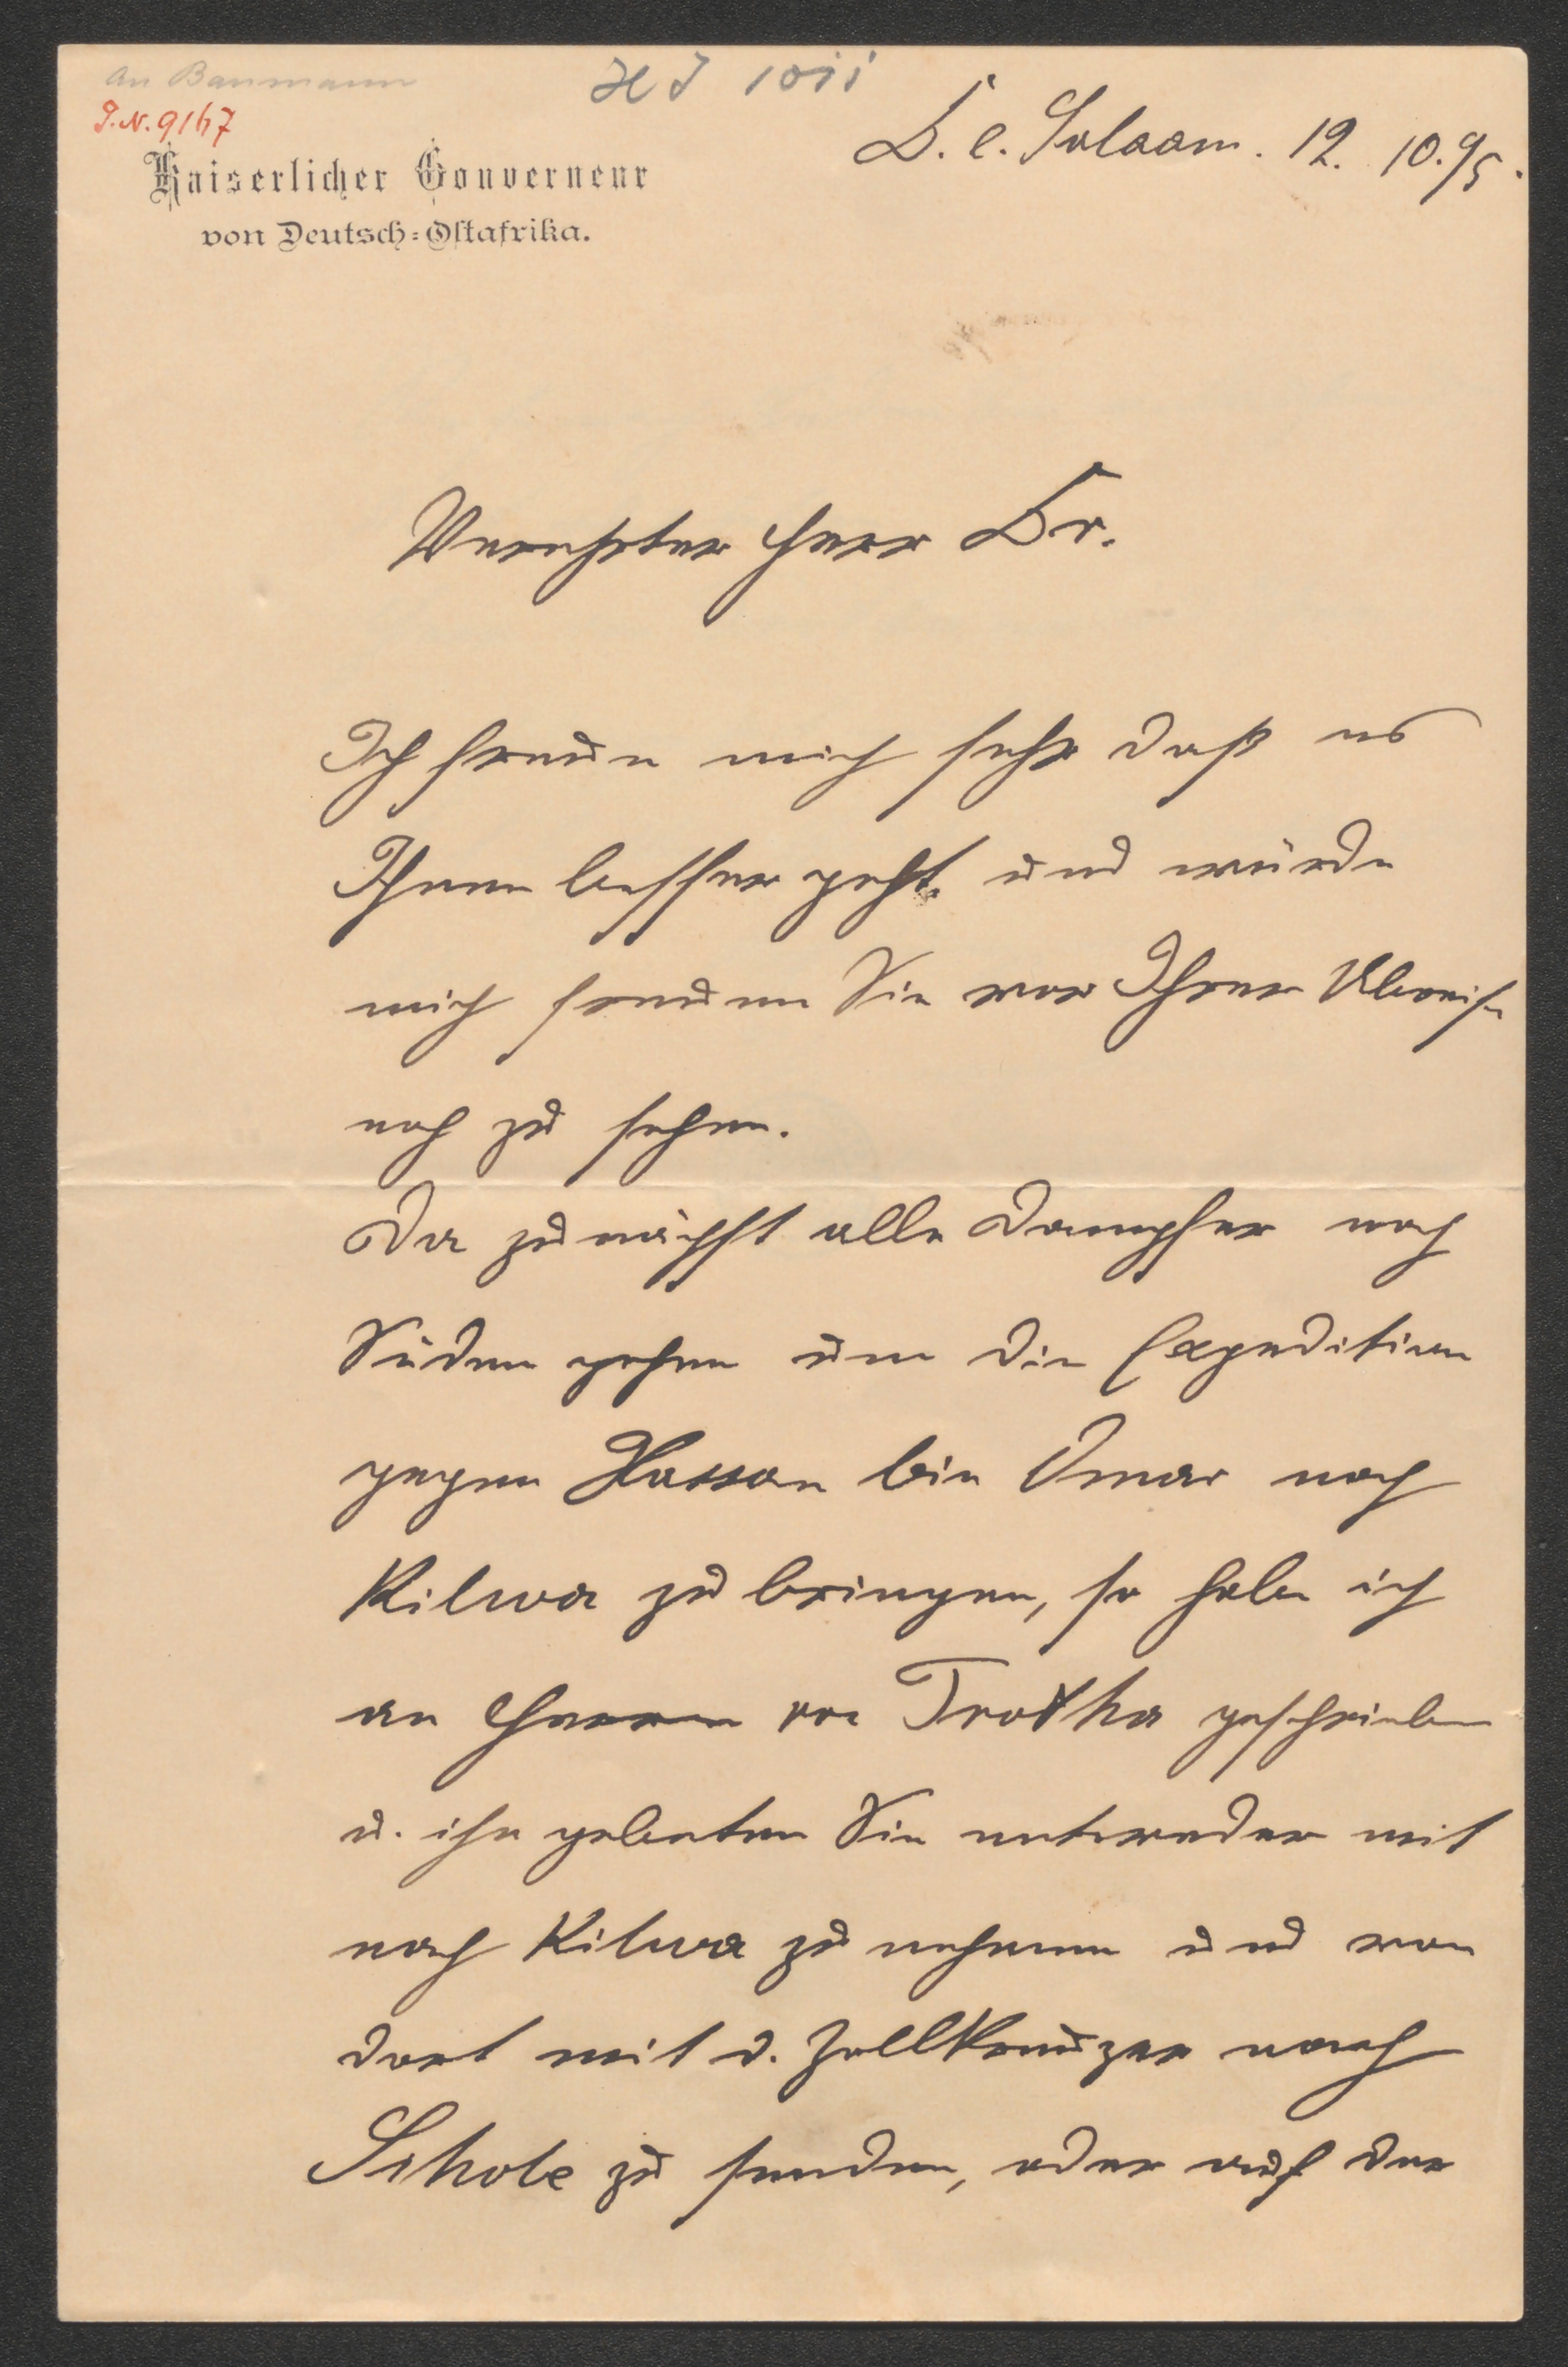 An Baumann
J.N. 9167
Kaiserlicher Gouverneur
von Deutsch=Ostafrika.
D. e. Salaam. 12. 10. 95.
Verehrter Herr Dr.
Ich freue mich sehr daß es
Ihnen besser geht und würde
mich freuen Sie vor Ihrer Abreise
noch zu sehen.
Da zunächst alle Dampfer nach
Süden gehen um die Expedition
gegen Hassan bin Omar nach
Kilwa zu bringen, so habe ich
an Herrn von Trotha geschrieben
u. ihn gebeten Sie entweder mit
nach Kilwa zu nehmen und von
dort mit d. Zollkreuzer nach
Schole zu senden, oder auf der